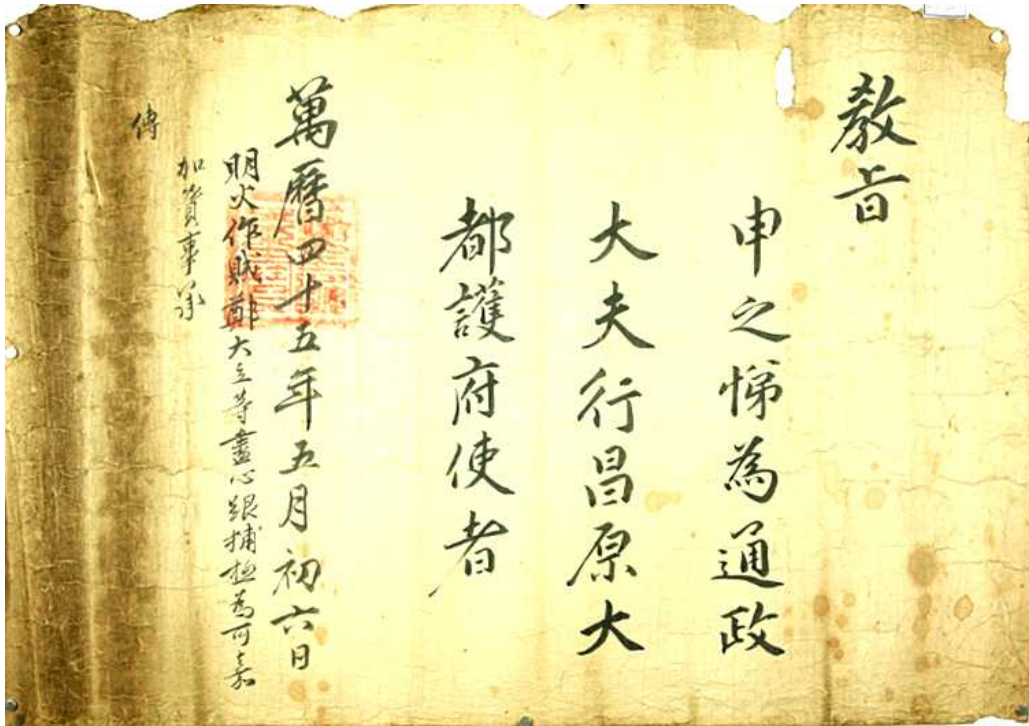 教旨
申之悌為通政
大夫行昌原大
都護府使者
萬曆四十五年五月初六日
明火作賊鄭大立等盡心跟捕極為可嘉
加資事承
傳